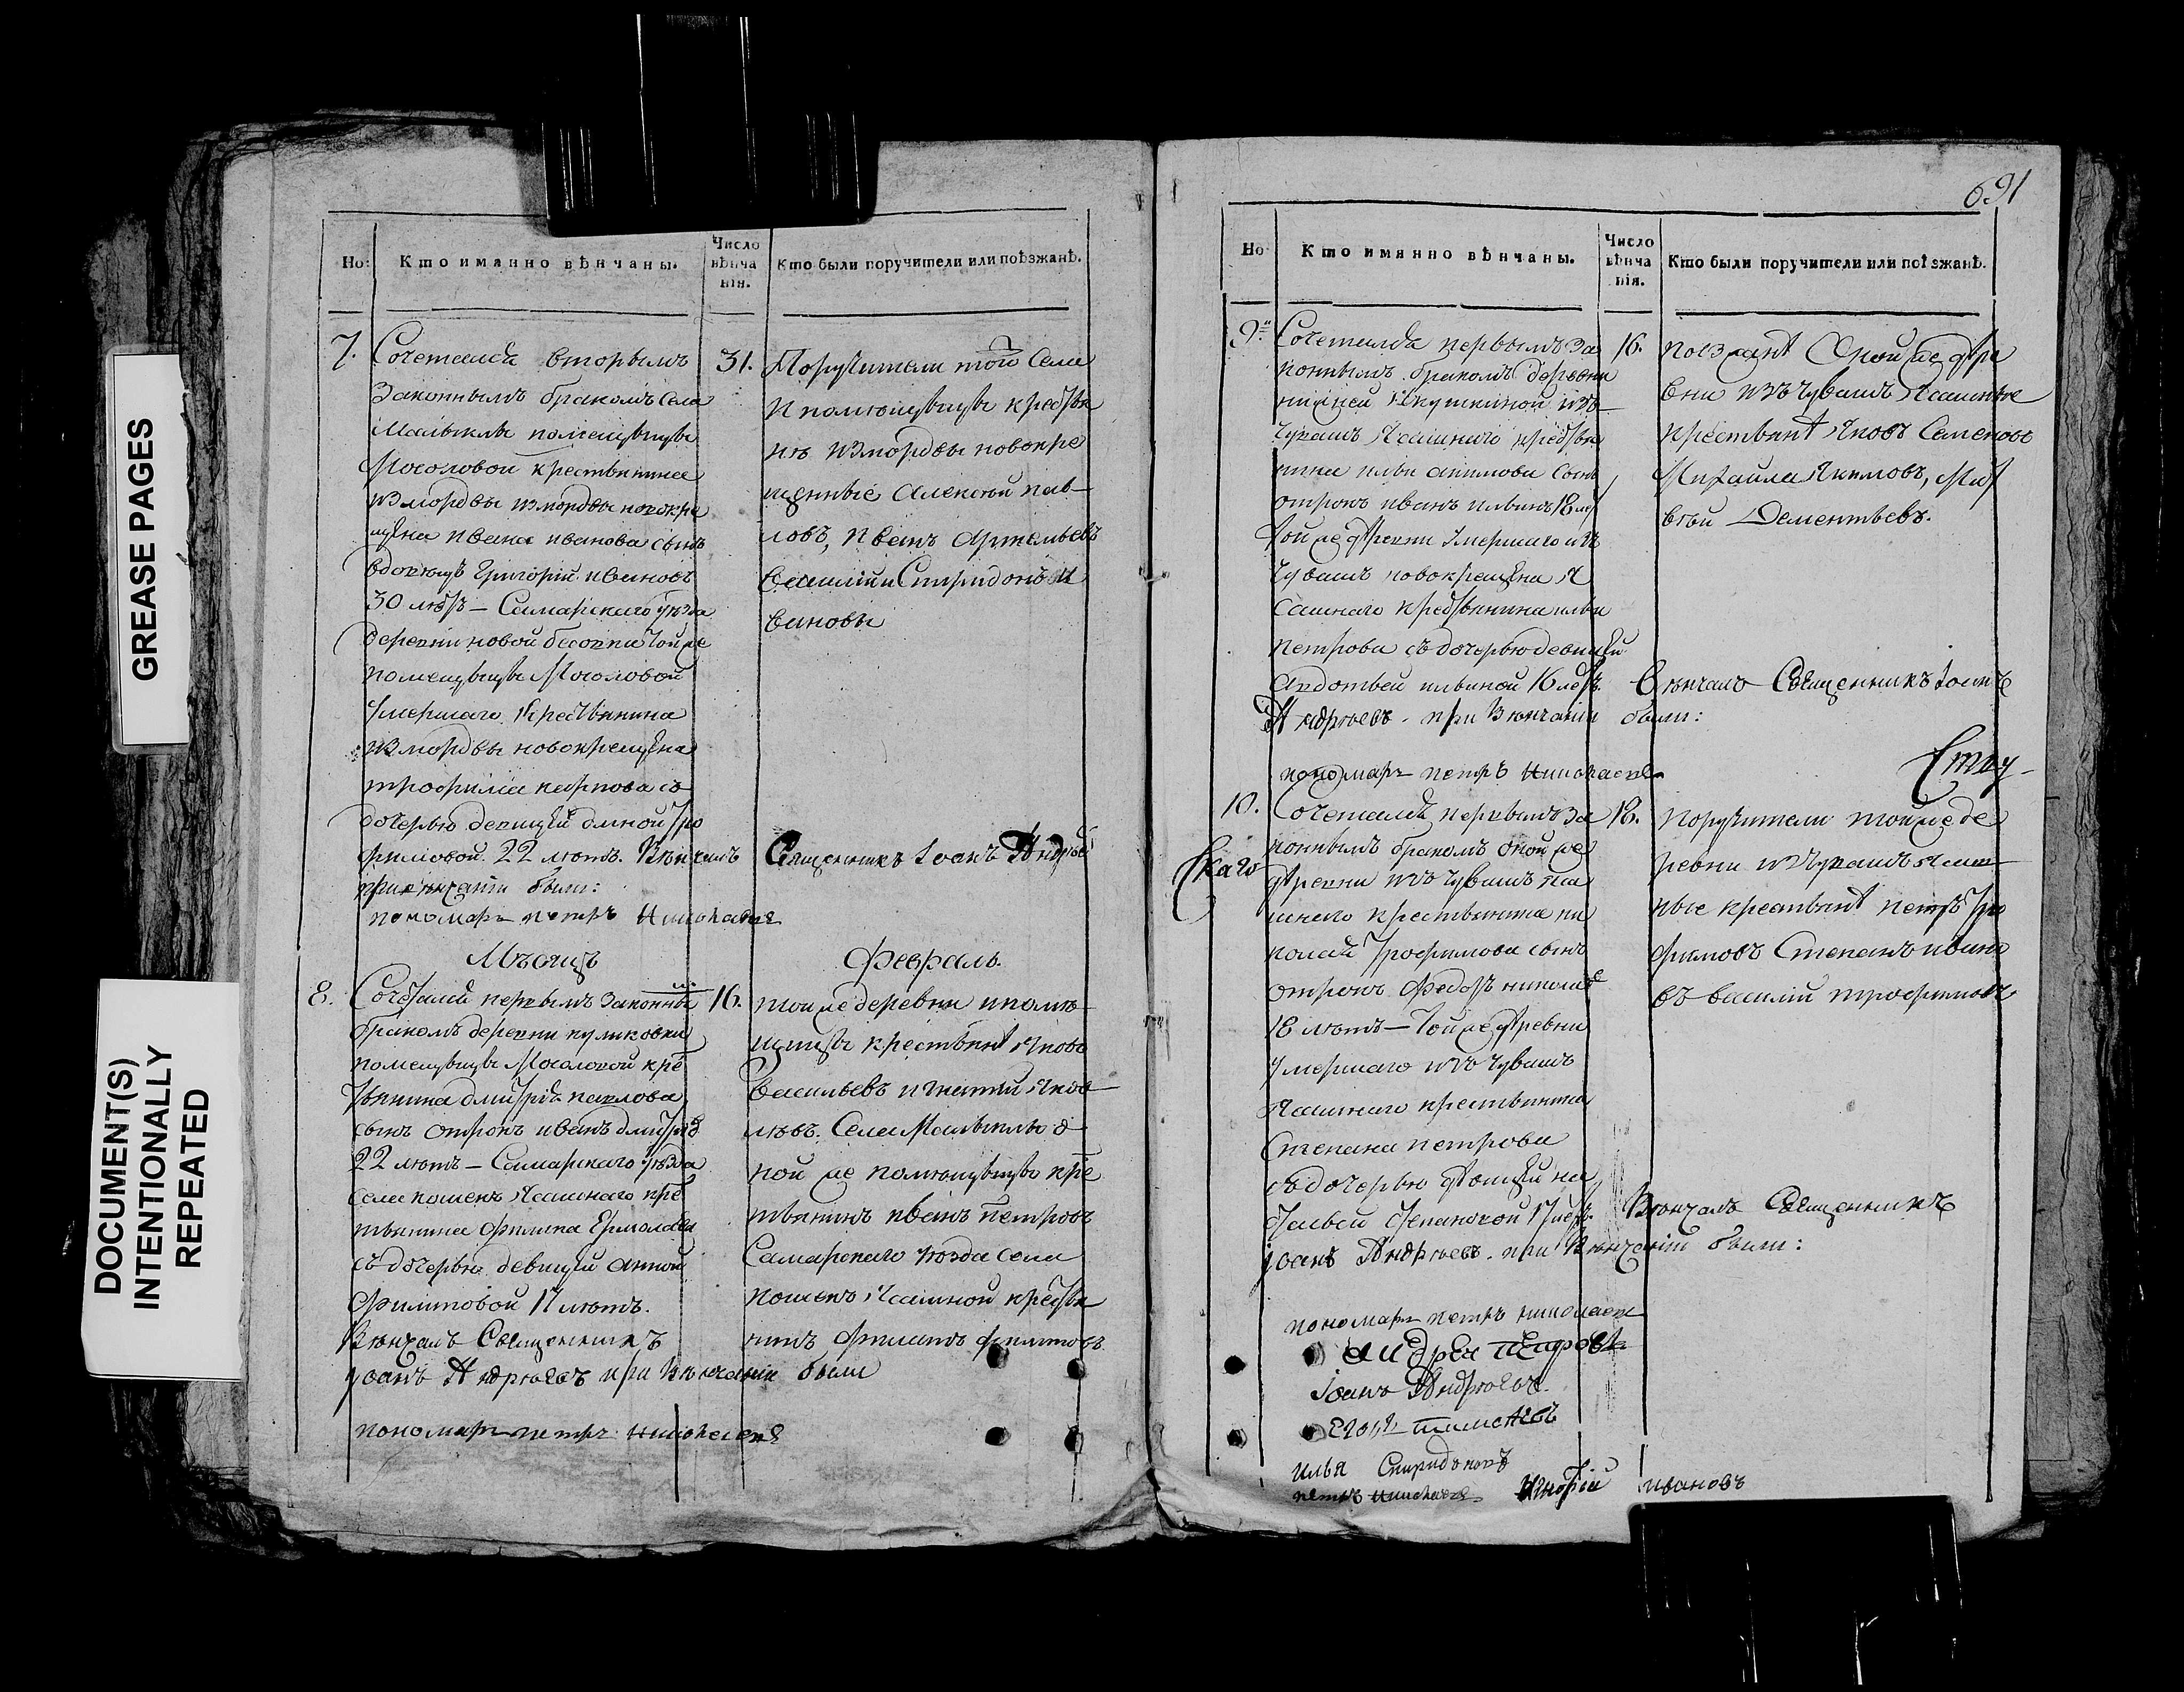 GREASE PAGES
DOCUMENT(S)
INTENTIONALLY
REPEATED
Но: Кто имянно вѣнчаны. Число вѣнча нія. Кто были поручители или поѣзжанѣ.
7. Сочетался вторымъ 31.
законнымъ бракомъ села
помещицы
Мосоловой крестьянина
измордвы измордвы новокре
щена ивана иванова сынъ
вдовецъ Григорій ивановъ
30 летъ — Самарскаго уезда
деревни новой бесовки тойже
помещицы Мосоловой
умершаго крестьянина
измордвы новокрещена
трофима карпова съ
дочерью девицей Тро
фимовой 22 летъ. Венчалъ
при венчаніи были:
пономарь петръ Николаевъ
Поручители той села
помещицы крестья
нѣ измордвы новокре
щенные Алексей пав
ловъ, иванъ Артемьевъ
василий Спиридонъ и
вановы
Священникъ Іоанъ Андрее
Мѣсяцъ Февраль.
8. Сочетался первымъ законны 16.
бракомъ деревни куликовки
помещицы Мосоловой кре
тьянина дмитрія павлова
сынъ отрокъ иванъ дмитрие
22 летъ — Самарскаго уезда
села Ясашнаго кре
тьянина филипа Ермолаева
съ дочерью девицей анной
Филиповой 17 летъ.
Венчалъ Священникъ
Іоанъ Андреевъ при венчаніи были
пономарь петръ Николаевъ
тойже деревни помѣ
щицы крестьянѣ Яковъ
васильевъ игнатий Яков
левъ. Села о
ной же помещицы кре
тьянинъ иванъ петровъ
Самарскаго уезда села
Ясашной крестья
нинъ филипъ филиповъ
691
Но Кто имянно вѣнчаны. Число вѣнча нія. Кто были поручители или поѣзжанѣ.
9. Сочетался первымъ за 16.
коннымъ бракомъ деревни
нижней Якушкиной изъ
чувашъ Ясашнаго крестья
нина ильи акимова сынъ
отрокъ иванъ ильинъ 18 ле
той же деревни умершаго изъ
чувашъ новокрещена Я
сашнаго крестьянина ильи
петрова съ дочерью девицей
Авдотьей ильиной 16 летъ. Венчалъ Священникъ Іоанъ
Андреевъ. при венчаніи были:
пономарь петръ Николаевъ
поезжанѣ Оной же дере
вни изъ чувашъ Ясашные
крестьянѣ Яковъ Семеновъ
Михайла Якимовъ, Мат
вей Дементьевъ.
Ставро
10. Сочетался первымъ за 18.
коннымъ бракомъ оной же
скаго
деревни изъ чувашъ Яса
шнаго крестьянина ни
колая Трофимова сынъ
отрокъ Федоръ николае
18 летъ — той же деревни
умершаго изъ чувашъ
Ясашнаго крестьянина
Степана петрова
съ дочерью девицей на
стасьей степановой 17 летъ. Венчалъ Священникъ
Іоанъ Андреевъ. при венчаніи были:
поручители тойже де
ревни изъ чувашъ Ясаш
ные крестьянѣ петръ Тро
фимовъ Степанъ ивано
въ василий трофимовъ
пономарь петръ николаевъ
андрей петровъ
Іоанъ Андреевъ.
илья Спиридоновъ
петръ Николаевъ ивановъ